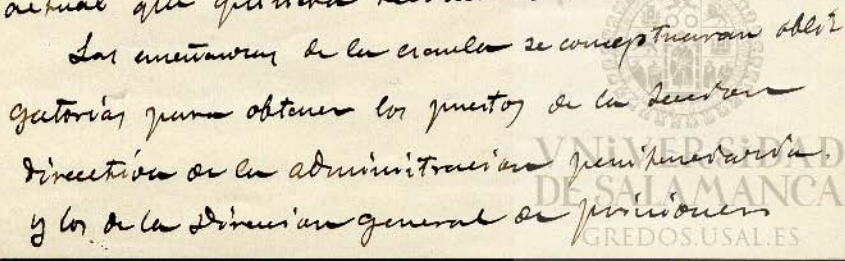 actual que
Las enseñanzas de la escuela se conceptuaran obli
gatorias para obtener los puestos de la Seccion
directiva de la administracion penitenciaria.
y los de la Direccion general de prisiones
VNiVERSiDAD
DE SALAMANCA
GREDOS.USAL.ES